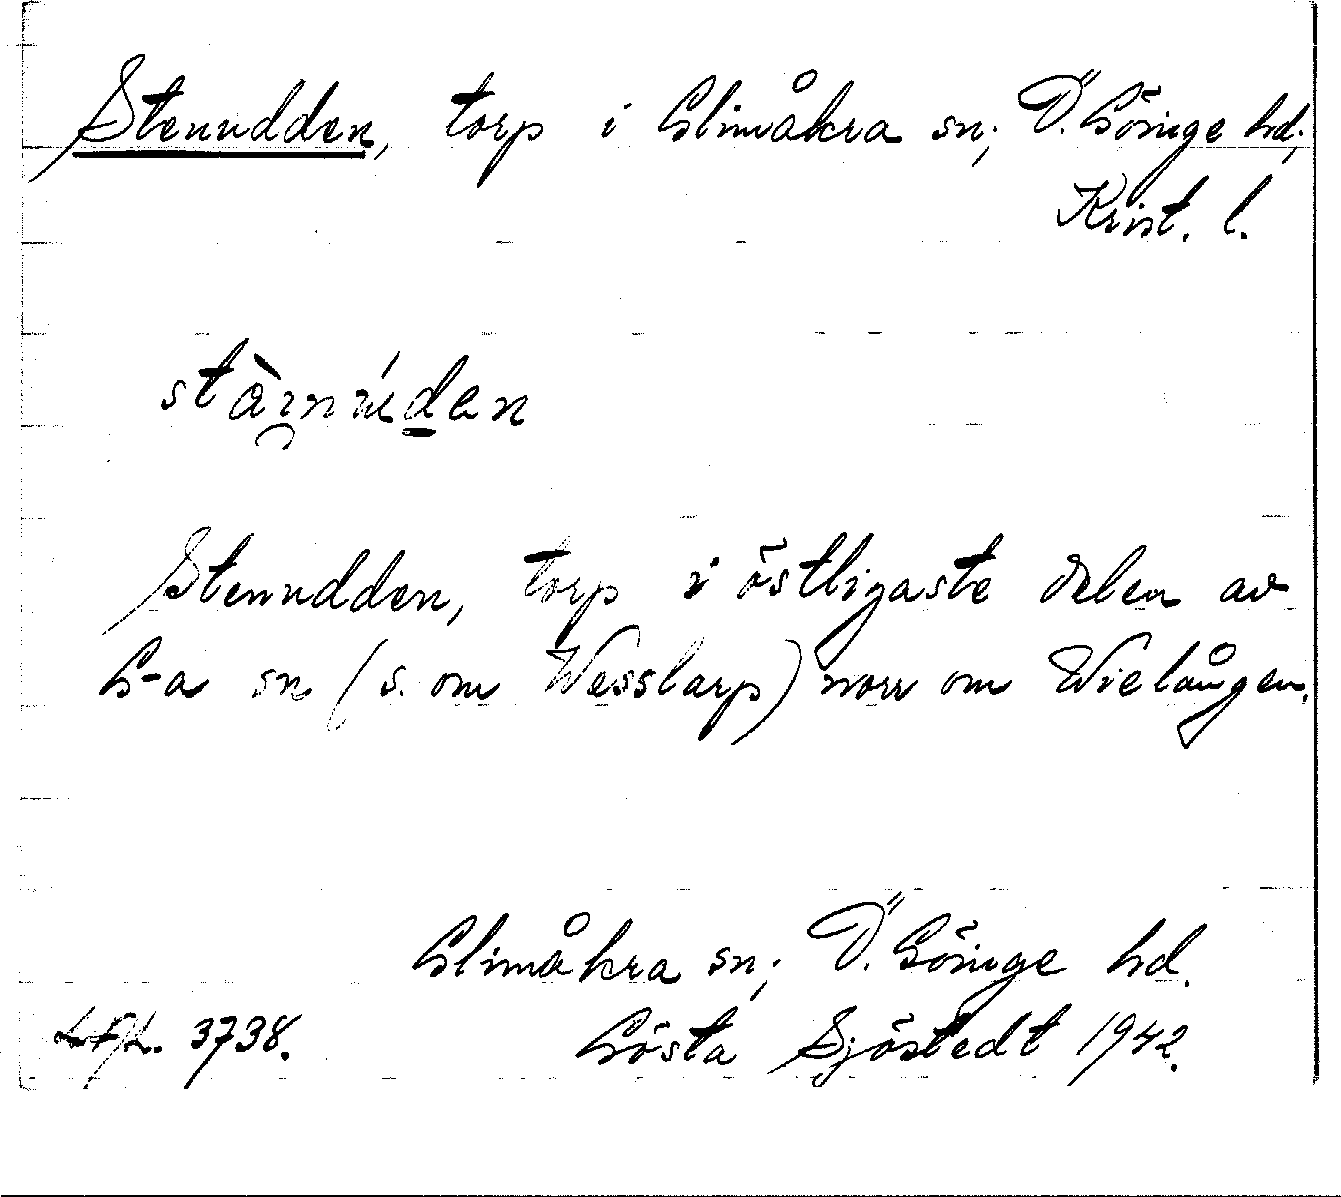 Stenudden, torp i Glimåkra sn; Ö. Göinge hd;
Krist. l.
Stenudden, torp i östligaste delen av
G-a sn (s. om Wesslarp) norr om Wielången.
Glimåkra sn; Ö. Göinge hd.
3738. Gösta Sjöstedt 1942.